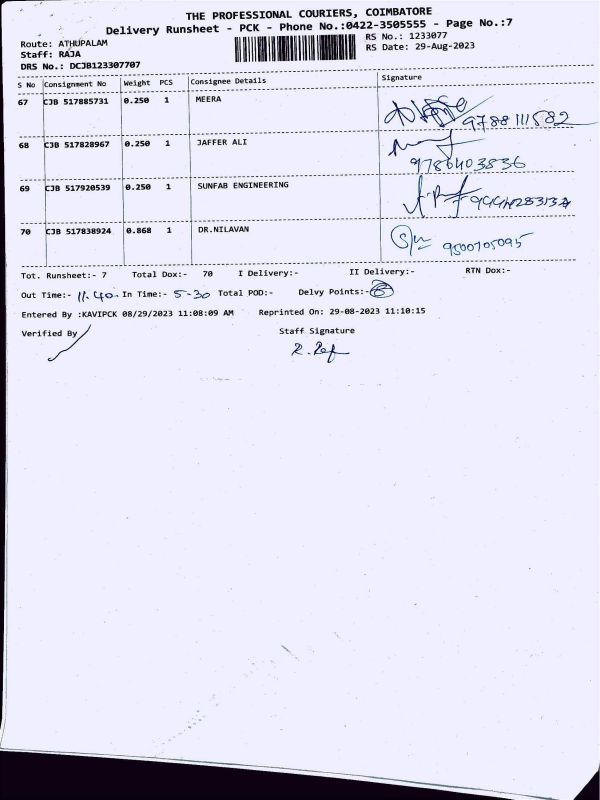 THE PROFESSIONAL COURIERS, COIMBATORE
Delivery Runsheet - PCK - Phone No.:0422-3505555 - Page No.:7
Route: ATHUPALAM RS No.: 1233077
Staff: RAJA RS Date: 29-Aug-2023
DRS No.: DCJB123307707
S No Consignment No Weight PCS Consignee Details Signature
67 CJB 517885731 0.250 1 MEERA
9788111582
68 CJB 517828967 0.250 1 JAFFER ALI
9786403836
69 CJB 517920539 0.250 1 SUNFAB ENGINEERING
70 CJB 517838924 0.868 1 DR.NILAVAN
9500705095
Tot. Runsheet:- 7 Total Dox:- 70 I Delivery:- II Delivery:- RTN Dox:-
Out Time:- 11.40 In Time:- 5-30 Total POD:- Delvy Points:-
Entered By :KAVIPCK 08/29/2023 11:08:09 AM Reprinted On: 29-08-2023 11:10:15
Verified By Staff Signature